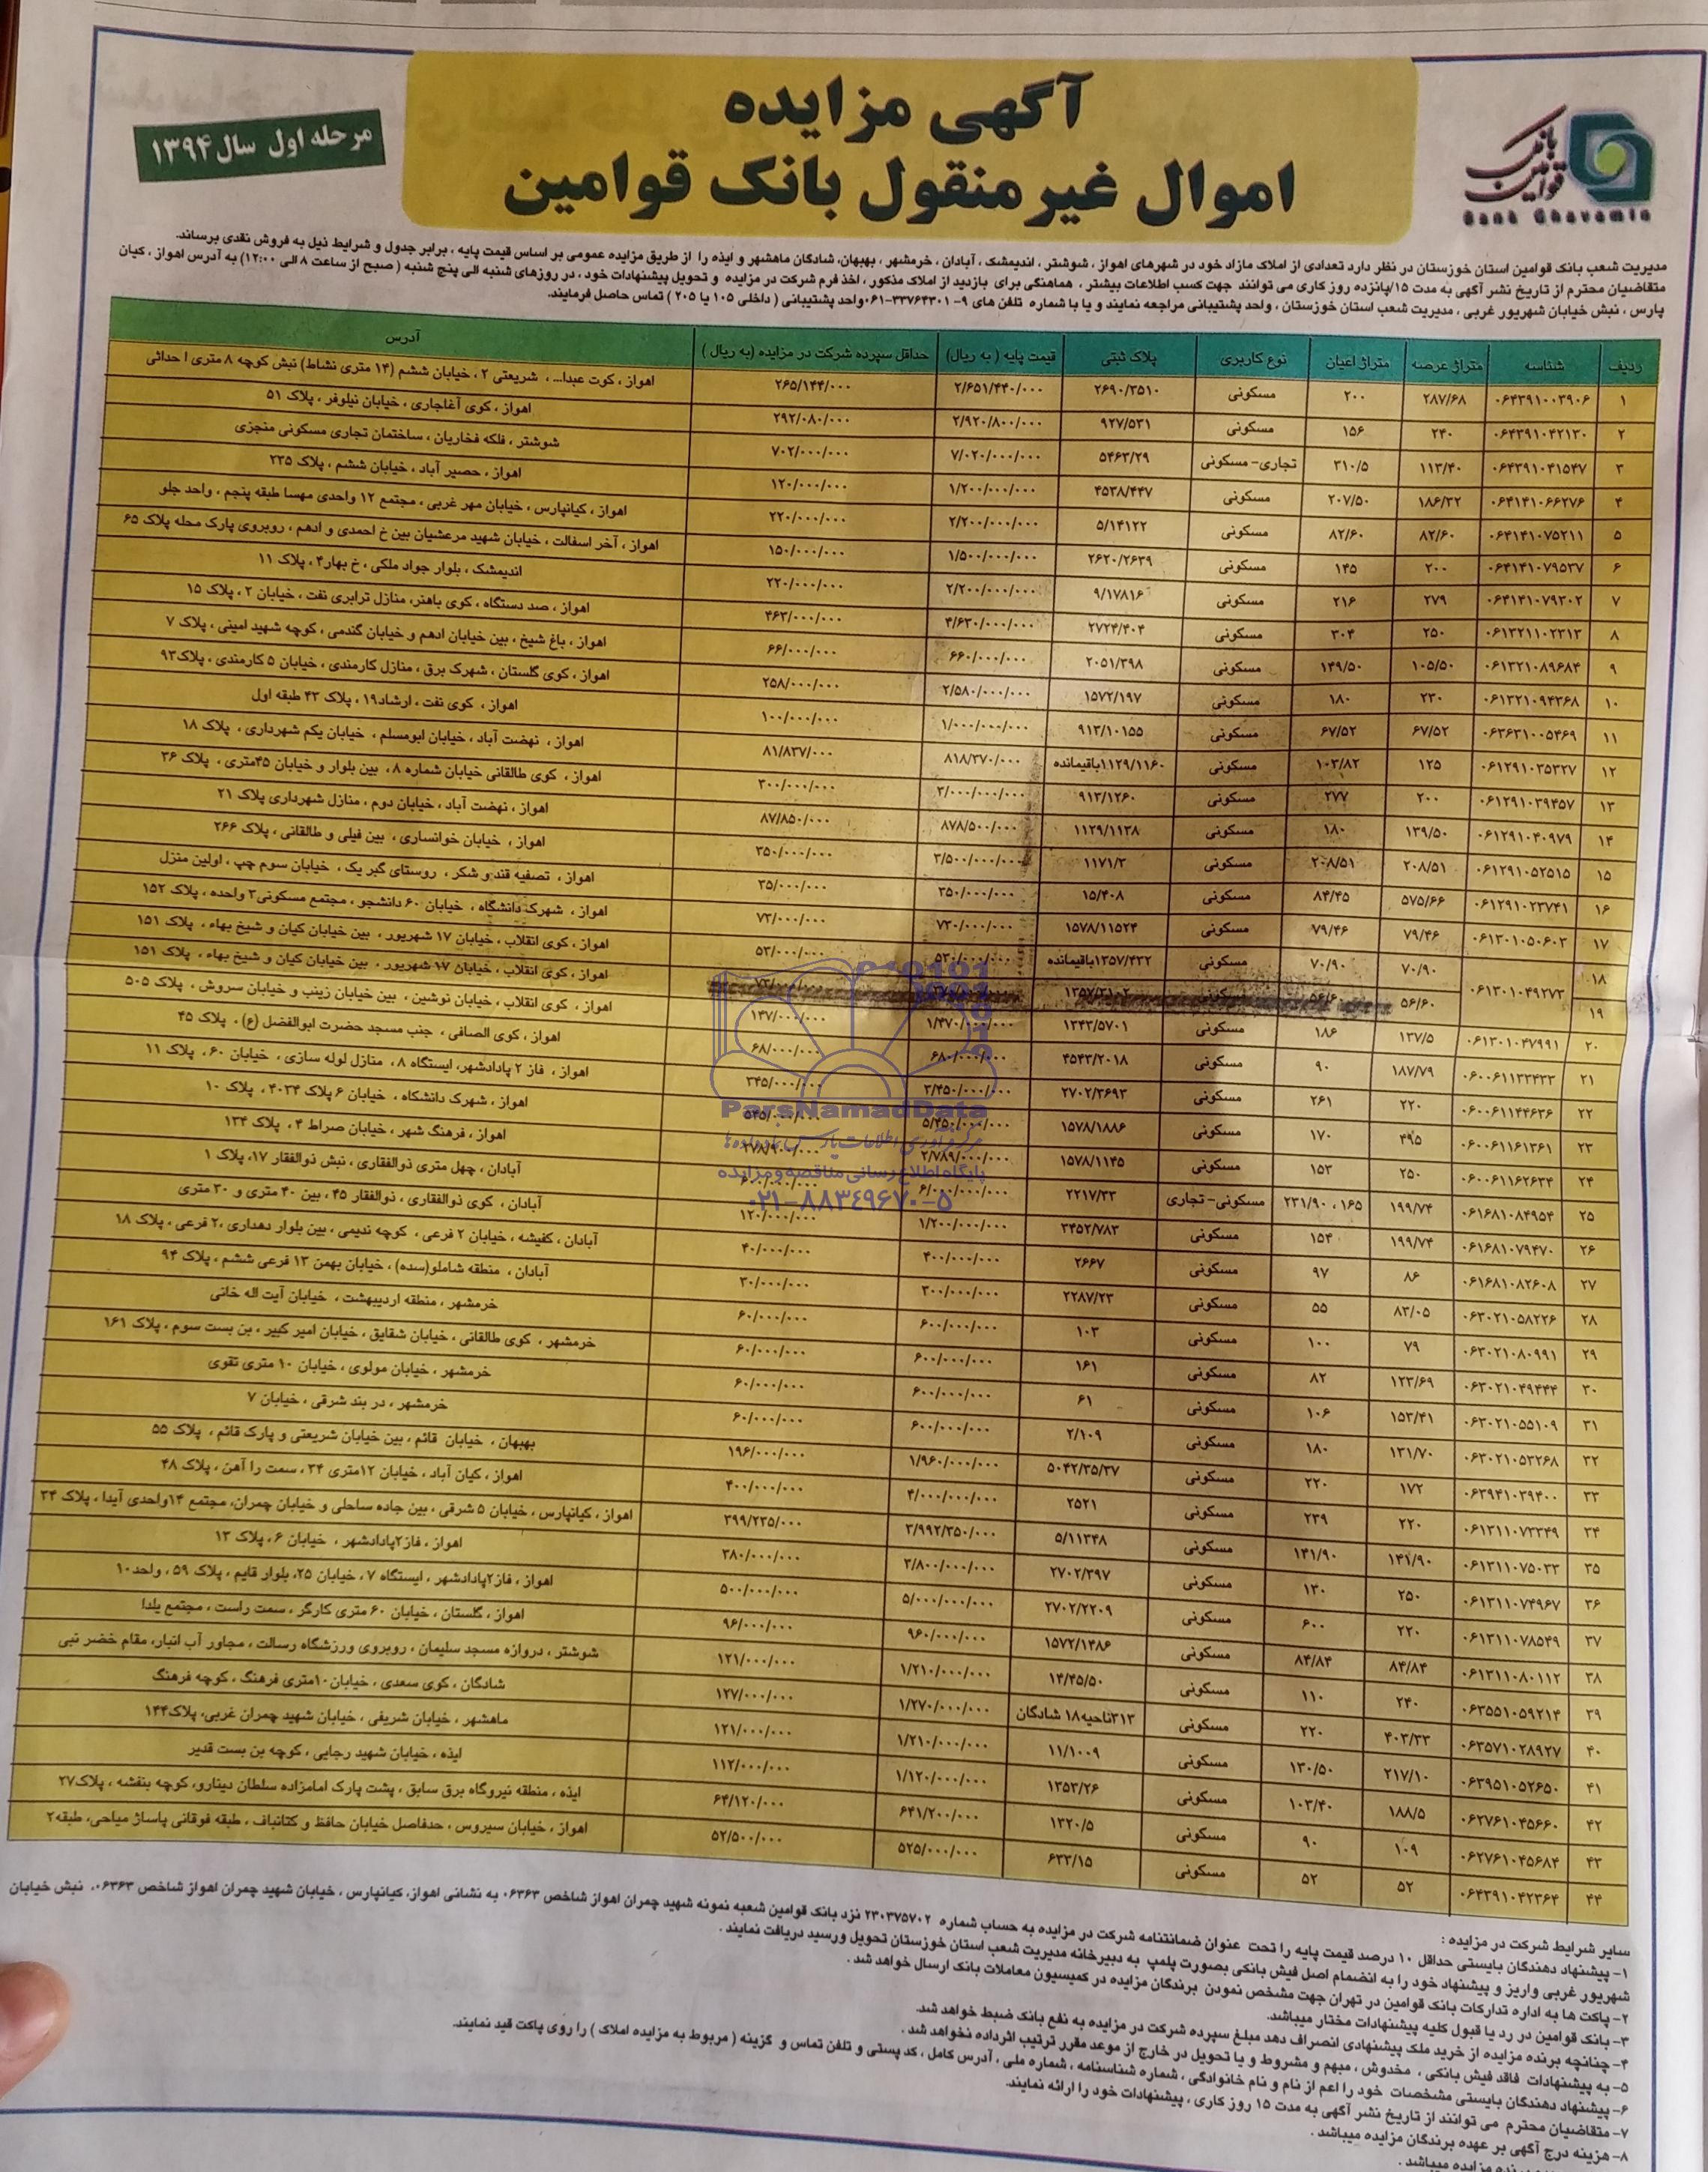 آگهی مزایده
اموال غیر منقول بانک قوامین
مرحله اول سال ۱۳۹۴
بانک قوامین
Bank Ghavamin
مدیریت شعب بانک قوامین استان خوزستان در نظر دارد تعدادی از املاک مازاد خود در شهرهای اهواز ، شوشتر ، اندیمشک ، آبادان ، خرمشهر ، بهبهان، شادگان ماهشهر و ایذه را از طریق مزایده عمومی بر اساس قیمت پایه ، برابر جدول و شرایط ذیل به فروش نقدی برساند.
متقاضیان محترم از تاریخ نشر آگهی به مدت ۱۵/پانزده روز کاری می توانند جهت کسب اطلاعات بیشتر ، هماهنگی برای بازدید از املاک مذکور ، اخذ فرم شرکت در مزایده و تحویل پیشنهادات خود ، در روزهای شنبه الی پنج شنبه ( صبح از ساعت ۸ الی ۱۲:۰۰) به آدرس اهواز ، کیان
پارس ، نبش خیابان شهریور غربی ، مدیریت شعب استان خوزستان ، واحد پشتیبانی مراجعه نمایند و یا با شماره تلفن های ۹-۳۳۷۶۴۳۰۱-۰۶۱ واحد پشتیبانی ( داخلی ۱۰۵ یا ۲۰۵ ) تماس حاصل فرمایند.
ردیف شناسه متراژ عرصه متراژ اعیان نوع کاربری پلاک ثبتی قیمت پایه ( به ریال) حداقل سپرده شرکت در مزایده (به ریال ) آدرس
۱ ۰۶۴۳۹۱۰۰۳۹۰۶ ۲۸۷/۶۸ ۲۰۰ مسکونی ۲۶۹۰/۳۵۱۰ ۲/۶۵۱/۴۴۰/۰۰۰ ۲۶۵/۱۴۴/۰۰۰ اهواز ، کوت عبدا... ، شریعتی ۲ ، خیابان ششم (۱۴ متری نشاط) نبش کوچه ۸ متری احداثی
۲ ۰۶۴۳۹۱۰۴۲۱۳۰ ۲۴۰ ۱۵۶ مسکونی ۹۲۷/۵۳۱ ۲/۹۲۰/۸۰۰/۰۰۰ ۲۹۲/۰۸۰/۰۰۰ اهواز ، کوی آغاجاری ، خیابان نیلوفر ، پلاک ۵۱
۳ ۰۶۴۳۹۱۰۴۱۵۴۷ ۱۱۳/۴۰ ۳۱۰/۵ تجاری- مسکونی ۵۴۶۳/۲۹ ۷/۰۲۰/۰۰۰/۰۰۰ ۷۰۲/۰۰۰/۰۰۰ شوشتر ، فلکه فخاریان ، ساختمان تجاری مسکونی منجزی
۴ ۰۶۴۱۴۱۰۶۶۲۷۶ ۱۸۶/۳۲ ۲۰۷/۵۰ مسکونی ۴۵۳۸/۴۴۷ ۱/۲۰۰/۰۰۰/۰۰۰ ۱۲۰/۰۰۰/۰۰۰ اهواز ، حصیر آباد ، خیابان ششم ، پلاک ۲۳۵
۵ ۰۶۴۱۴۱۰۷۵۲۱۱ ۸۲/۶۰ ۸۲/۶۰ مسکونی ۵/۱۴۱۲۲ ۲/۲۰۰/۰۰۰/۰۰۰ ۲۲۰/۰۰۰/۰۰۰ اهواز ، کیانپارس ، خیابان مهر غربی ، مجتمع ۱۲ واحدی مهسا طبقه پنجم ، واحد جلو
۶ ۰۶۴۱۴۱۰۷۹۵۳۷ ۲۰۰ ۱۴۵ مسکونی ۲۶۲۰/۲۶۳۹ ۱/۵۰۰/۰۰۰/۰۰۰ ۱۵۰/۰۰۰/۰۰۰ اهواز ، آخر اسفالت ، خیابان شهید مرعشیان بین خ احمدی و ادهم ، روبروی پارک محله پلاک ۶۵
۷ ۰۶۴۱۴۱۰۷۹۳۰۲ ۲۷۹ ۲۱۶ مسکونی ۹/۱۷۸۱۶ ۲/۲۰۰/۰۰۰/۰۰۰ ۲۲۰/۰۰۰/۰۰۰ اندیمشک ، بلوار جواد ملکی ، خ بهار۴ ، پلاک ۱۱
۸ ۰۶۱۳۲۱۱۰۲۳۱۳ ۲۵۰ ۳۰۴ مسکونی ۲۷۲۴/۴۰۴ ۴/۶۳۰/۰۰۰/۰۰۰ ۴۶۳/۰۰۰/۰۰۰ اهواز ، صد دستگاه ، کوی باهنر، منازل ترابری نفت ، خیابان ۲ ، پلاک ۱۵
۹ ۰۶۱۳۲۱۰۸۹۶۸۴ ۱۰۵/۵۰ ۱۴۹/۵۰ مسکونی ۲۰۵۱/۳۹۸ ۶۶۰/۰۰۰/۰۰۰ ۶۶/۰۰۰/۰۰۰ اهواز ، باغ شیخ ، بین خیابان ادهم و خیابان گندمی ، کوچه شهید امینی ، پلاک ۷
۱۰ ۰۶۱۳۲۱۰۹۴۳۶۸ ۲۳۰ ۱۸۰ مسکونی ۱۵۷۲/۱۹۷ ۲/۵۸۰/۰۰۰/۰۰۰ ۲۵۸/۰۰۰/۰۰۰ اهواز ، کوی گلستان ، شهرک برق ، منازل کارمندی ، خیابان ۵ کارمندی ، پلاک۹۳
۱۱ ۰۶۳۶۳۱۰۰۵۴۶۹ ۶۷/۵۲ ۶۷/۵۲ مسکونی ۹۱۳/۱۰۱۵۵ ۱/۰۰۰/۰۰۰/۰۰۰ ۱۰۰/۰۰۰/۰۰۰ اهواز ، کوی نفت ، ارشاد۱۹ ، پلاک ۴۳ طبقه اول
۱۲ ۰۶۱۲۹۱۰۳۵۳۲۷ ۱۲۵ ۱۰۳/۸۲ مسکونی ۱۱۲۹/۱۱۶۰باقیمانده ۸۱۸/۳۷۰/۰۰۰ ۸۱/۸۳۷/۰۰۰ اهواز ، نهضت آباد ، خیابان ابومسلم ، خیابان یکم شهرداری ، پلاک ۱۸
۱۳ ۰۶۱۲۹۱۰۳۹۴۵۷ ۲۰۰ ۲۷۷ مسکونی ۹۱۳/۱۲۶۰ ۳/۰۰۰/۰۰۰/۰۰۰ ۳۰۰/۰۰۰/۰۰۰ اهواز ، کوی طالقانی خیابان شماره ۸ ، بین بلوار و خیابان ۴۵متری ، پلاک ۳۶
۱۴ ۰۶۱۲۹۱۰۴۰۹۷۹ ۱۳۹/۵۰ ۱۸۰ مسکونی ۱۱۲۹/۱۱۳۸ ۸۷۸/۵۰۰/۰۰۰ ۸۷/۸۵۰/۰۰۰ اهواز ، نهضت آباد ، خیابان دوم ، منازل شهرداری پلاک ۲۱
۱۵ ۰۶۱۲۹۱۰۵۲۵۱۵ ۲۰۸/۵۱ ۲۰۸/۵۱ مسکونی ۱۱۷۱/۳ ۳/۵۰۰/۰۰۰/۰۰۰ ۳۵۰/۰۰۰/۰۰۰ اهواز ، خیابان خوانساری ، بین فیلی و طالقانی ، پلاک ۲۶۶
۱۶ ۰۶۱۲۹۱۰۲۳۷۴۱ ۵۷۵/۶۶ ۸۴/۴۵ مسکونی ۱۵/۴۰۸ ۳۵۰/۰۰۰/۰۰۰ ۳۵/۰۰۰/۰۰۰ اهواز ، تصفیه قند و شکر ، روستای گبر یک ، خیابان سوم چپ ، اولین منزل
۱۷ ۰۶۱۳۰۱۰۵۰۶۰۳ ۷۹/۴۶ ۷۹/۴۶ مسکونی ۱۵۷۸/۱۱۵۲۴ ۷۳۰/۰۰۰/۰۰۰ ۷۳/۰۰۰/۰۰۰ اهواز ، شهرک دانشگاه ، خیابان ۶۰ دانشجو ، مجتمع مسکونی۳ واحده ، پلاک ۱۵۲
۱۸ ۰۶۱۳۰۱۰۴۹۲۷۳ ۷۰/۹۰ ۷۰/۹۰ مسکونی ۱۳۵۷/۴۳۲باقیمانده ۵۳۰/۰۰۰/۰۰۰ ۵۳/۰۰۰/۰۰۰ اهواز ، کوی انقلاب ، خیابان ۱۷ شهریور ، بین خیابان کیان و شیخ بهاء ، پلاک ۱۵۱
۱۹ ۵۶/۶۰ ۵۶/۶۰ مسکونی اهواز ، کوی انقلاب ، خیابان ۱۷ شهریور ، بین خیابان کیان و شیخ بهاء ، پلاک ۱۵۱
۲۰ ۰۶۱۳۰۱۰۴۷۹۹۱ ۱۳۷/۵ ۱۸۶ مسکونی ۱۳۴۳/۵۷۰۱ ۱/۴۷۰/۰۰۰/۰۰۰ ۱۴۷/۰۰۰/۰۰۰ اهواز ، کوی انقلاب ، خیابان نوشین ، بین خیابان زینب و خیابان سروش ، پلاک ۵۰۵
۲۱ ۰۶۰۰۶۱۱۳۳۴۳۳ ۱۸۷/۷۹ ۹۰ مسکونی ۴۵۴۳/۲۰۱۸ ۶۸۰/۰۰۰/۰۰۰ ۶۸/۰۰۰/۰۰۰ اهواز ، کوی الصافی ، جنب مسجد حضرت ابوالفضل (ع) ، پلاک ۴۵
۲۲ ۰۶۰۰۶۱۱۴۴۶۳۶ ۲۲۰ ۲۶۱ مسکونی ۲۷۰۲/۳۶۹۳ ۳/۴۵۰/۰۰۰/۰۰۰ ۳۴۵/۰۰۰/۰۰۰ اهواز ، فاز ۲ پادادشهر، ایستگاه ۸ ، منازل لوله سازی ، خیابان ۶۰ ، پلاک ۱۱
۲۳ ۰۶۰۰۶۱۱۶۱۳۶۱ ۴۹۵ ۱۷۰ مسکونی ۱۵۷۸/۱۸۸۶ ۵/۴۵۰/۰۰۰/۰۰۰ ۵۴۵/۰۰۰/۰۰۰ اهواز ، شهرک دانشگاه ، خیابان ۶ پلاک ۴۰۳۴ ، پلاک ۱۰
۲۴ ۰۶۰۰۶۱۱۶۲۶۳۴ ۲۵۰ ۱۵۳ مسکونی ۱۵۷۸/۱۱۴۵ ۲/۷۸۹/۰۰۰/۰۰۰ ۲۷۸/۹۰۰/۰۰۰ اهواز ، فرهنگ شهر ، خیابان صراط ۴ ، پلاک ۱۳۴
۲۵ ۰۶۱۶۸۱۰۸۴۹۵۴ ۱۹۹/۷۴ ۱۶۵ ، ۲۳۱/۹۰ مسکونی- تجاری ۲۲۱۷/۳۳ ۶/۰۰۰/۰۰۰/۰۰۰ ۶۰۰/۰۰۰/۰۰۰ آبادان ، چهل متری ذوالفقاری ، نبش ذوالفقار ۱۷، پلاک ۱
۲۶ ۰۶۱۶۸۱۰۷۹۴۷۰ ۱۹۹/۷۴ ۱۵۴ مسکونی ۳۴۵۲/۷۸۳ ۱/۲۰۰/۰۰۰/۰۰۰ ۱۲۰/۰۰۰/۰۰۰ آبادان ، کوی ذوالفقاری ، ذوالفقار ۴۵ ، بین ۴۰ متری و ۳۰ متری
۲۷ ۰۶۱۶۸۱۰۸۲۶۰۸ ۸۶ ۹۷ مسکونی ۲۶۶۷ ۴۰۰/۰۰۰/۰۰۰ ۴۰/۰۰۰/۰۰۰ آبادان ، کفیشه ، خیابان ۲ فرعی ، کوچه ندیمی ، بین بلوار دهداری ،۲۰ فرعی ، پلاک ۱۸
۲۸ ۰۶۳۰۲۱۰۵۸۲۲۶ ۸۳/۰۵ ۵۵ مسکونی ۲۲۸۷/۲۳ ۳۰۰/۰۰۰/۰۰۰ ۳۰/۰۰۰/۰۰۰ آبادان ، منطقه شاملو(سده) ، خیابان بهمن ۱۳ فرعی ششم ، پلاک ۹۴
۲۹ ۰۶۳۰۲۱۰۸۰۹۹۱ ۷۹ ۱۰۰ مسکونی ۱۰۳ ۶۰۰/۰۰۰/۰۰۰ ۶۰/۰۰۰/۰۰۰ خرمشهر ، منطقه اردیبهشت ، خیابان آیت اله خانی
۳۰ ۰۶۳۰۲۱۰۴۹۴۴۴ ۱۲۳/۶۹ ۸۲ مسکونی ۱۶۱ ۶۰۰/۰۰۰/۰۰۰ ۶۰/۰۰۰/۰۰۰ خرمشهر ، کوی طالقانی ، خیابان شقایق ، خیابان امیر کبیر ، بن بست سوم ، پلاک ۱۶۱
۳۱ ۰۶۳۰۲۱۰۵۵۱۰۹ ۱۵۳/۴۱ ۱۰۶ مسکونی ۶۱ ۶۰۰/۰۰۰/۰۰۰ ۶۰/۰۰۰/۰۰۰ خرمشهر ، خیابان مولوی ، خیابان ۱۰ متری تقوی
۳۲ ۰۶۳۰۲۱۰۵۳۲۶۸ ۱۳۱/۷۰ ۱۸۰ مسکونی ۲/۱۰۹ ۶۰۰/۰۰۰/۰۰۰ ۶۰/۰۰۰/۰۰۰ خرمشهر ، در بند شرقی ، خیابان ۷
۳۳ ۰۶۳۹۴۱۰۳۹۴۰۰ ۱۷۲ ۲۲۰ مسکونی ۵۰۴۲/۳۵/۳۷ ۱/۹۶۰/۰۰۰/۰۰۰ ۱۹۶/۰۰۰/۰۰۰ بهبهان ، خیابان قائم ، بین خیابان شریعتی و پارک قائم ، پلاک ۵۵
۳۴ ۰۶۱۳۱۱۰۷۳۳۴۹ ۲۲۰ ۲۳۹ مسکونی ۲۵۲۱ ۴/۰۰۰/۰۰۰/۰۰۰ ۴۰۰/۰۰۰/۰۰۰ اهواز ، کیان آباد ، خیابان ۱۲متری ۳۴ ، سمت را آهن ، پلاک ۴۸
۳۵ ۰۶۱۳۱۱۰۷۵۰۳۳ ۱۴۱/۹۰ ۱۴۱/۹۰ مسکونی ۵/۱۱۳۴۸ ۳/۹۹۲/۳۵۰/۰۰۰ ۳۹۹/۲۳۵/۰۰۰ اهواز ، کیانپارس ، خیابان ۵ شرقی ، بین جاده ساحلی و خیابان چمران، مجتمع ۱۴واحدی آیدا ، پلاک ۳۴
۳۶ ۰۶۱۳۱۱۰۷۴۹۶۷ ۲۵۰ ۱۳۰ مسکونی ۲۷۰۲/۳۹۷ ۳/۸۰۰/۰۰۰/۰۰۰ ۳۸۰/۰۰۰/۰۰۰ اهواز ، فاز۲پادادشهر ، خیابان ۶ ، پلاک ۱۳
۳۷ ۰۶۱۳۱۱۰۷۸۵۴۹ ۲۲۰ ۶۰۰ مسکونی ۲۷۰۲/۲۲۰۹ ۵/۰۰۰/۰۰۰/۰۰۰ ۵۰۰/۰۰۰/۰۰۰ اهواز ، فاز۲پادادشهر ، ایستگاه ۷ ، خیابان ۲۵، بلوار قایم ، پلاک ۵۹ ، واحد۱۰
۳۸ ۰۶۱۳۱۱۰۸۰۱۱۲ ۸۴/۸۴ ۸۴/۸۴ مسکونی ۱۵۷۲/۱۴۸۶ ۹۶۰/۰۰۰/۰۰۰ ۹۶/۰۰۰/۰۰۰ اهواز ، گلستان ، خیابان ۶۰ متری کارگر ، سمت راست ، مجتمع یلدا
۳۹ ۰۶۳۵۵۱۰۵۹۲۱۴ ۲۴۰ ۱۱۰ مسکونی ۱۴/۴۵/۵۰ ۱/۲۱۰/۰۰۰/۰۰۰ ۱۲۱/۰۰۰/۰۰۰ شوشتر ، دروازه مسجد سلیمان ، روبروی ورزشگاه رسالت ، مجاور آب انبار، مقام خضر نبی
۴۰ ۰۶۳۵۷۱۰۲۸۹۲۷ ۴۰۳/۳۳ ۲۲۰ مسکونی ۳۱۳ناحیه۱۸ شادگان ۱/۲۷۰/۰۰۰/۰۰۰ ۱۲۷/۰۰۰/۰۰۰ شادگان ، کوی سعدی ، خیابان۱۰متری فرهنگ ، کوچه فرهنگ
۴۱ ۰۶۳۹۵۱۰۵۲۶۵۰ ۲۱۷/۱۰ ۱۳۰/۵۰ مسکونی ۱۱/۱۰۰۹ ۱/۲۱۰/۰۰۰/۰۰۰ ۱۲۱/۰۰۰/۰۰۰ ماهشهر ، خیابان شریفی ، خیابان شهید چمران غربی، پلاک۱۴۴
۴۲ ۰۶۲۷۶۱۰۴۵۶۶۰ ۱۸۸/۵ ۱۰۳/۴۰ مسکونی ۱۳۵۳/۲۶ ۱/۱۲۰/۰۰۰/۰۰۰ ۱۱۲/۰۰۰/۰۰۰ ایذه ، خیابان شهید رجایی ، کوچه بن بست قدیر
۴۳ ۰۶۲۷۶۱۰۴۵۶۸۴ ۱۰۹ ۹۰ مسکونی ۱۳۲۰/۵ ۶۴۱/۲۰۰/۰۰۰ ۶۴/۱۲۰/۰۰۰ ایذه ، منطقه نیروگاه برق سابق ، پشت پارک امامزاده سلطان دینارو، کوچه بنفشه ، پلاک۲۷
۴۴ ۰۶۴۳۹۱۰۴۲۳۶۴ ۵۲ ۵۲ مسکونی ۶۳۳/۱۵ ۵۲۵/۰۰۰/۰۰۰ ۵۲/۵۰۰/۰۰۰ اهواز ، خیابان سیروس ، حدفاصل خیابان حافظ و کتانباف ، طبقه فوقانی پاساژ میاحی، طبقه۲
ParsNamadData
پایگاه اطلاع رسانی مناقصه و مزایده
۰۲۱-۸۸۳۴۹۶۷۰-۵
سایر شرایط شرکت در مزایده :
۱- پیشنهاد دهندگان بایستی حداقل ۱۰ درصد قیمت پایه را تحت عنوان ضمانتنامه شرکت در مزایده به حساب شماره ۲۳۰۳۷۵۷۰۲ نزد بانک قوامین شعبه نمونه شهید چمران اهواز شاخص ۰۶۳۶۳ به نشانی اهواز، کیانپارس ، خیابان شهید چمران اهواز شاخص ۰۶۳۶۳، نبش خیابان
شهریور غربی واریز و پیشنهاد خود را به انضمام اصل فیش بانکی بصورت پلمپ به دبیرخانه مدیریت شعب استان خوزستان تحویل ورسید دریافت نمایند .
۲- پاکت ها به اداره تدارکات بانک قوامین در تهران جهت مشخص نمودن برندگان مزایده در کمیسیون معاملات بانک ارسال خواهد شد .
۳- بانک قوامین در رد یا قبول کلیه پیشنهادات مختار میباشد.
۴- چنانچه برنده مزایده از خرید ملک پیشنهادی انصراف دهد مبلغ سپرده شرکت در مزایده به نفع بانک ضبط خواهد شد.
۵- به پیشنهادات فاقد فیش بانکی ، مخدوش ، مبهم و مشروط و یا تحویل در خارج از موعد مقرر ترتیب اثرداده نخواهد شد .
۶- پیشنهاد دهندگان بایستی مشخصات خود را اعم از نام و نام خانوادگی ، شماره شناسنامه ، شماره ملی ، آدرس کامل ، کد پستی و تلفن تماس و گزینه ( مربوط به مزایده املاک ) را روی پاکت قید نمایند.
۷- متقاضیان محترم می توانند از تاریخ نشر آگهی به مدت ۱۵ روز کاری ، پیشنهادات خود را ارائه نمایند.
۸- هزینه درج آگهی بر عهده برندگان مزایده میباشد .
برنده مزایده میباشد .